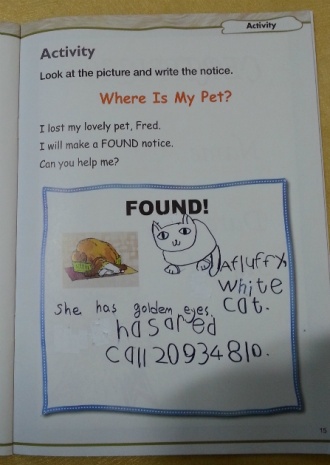 Activity
Activity
Look at the picture and write the notice.
Where Is My Pet?
I lost my lovely pet, Fred.
I will make a FOUND notice.
Can you help me?
FOUND!
A fluffy
white
cat.
She has goldem eyes.
has a red
Call 20934810.
15